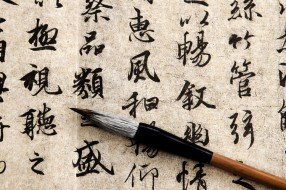 絲竹管弦之
以暢敘幽情
惠風和暢仰
察品類盛
極視聽之